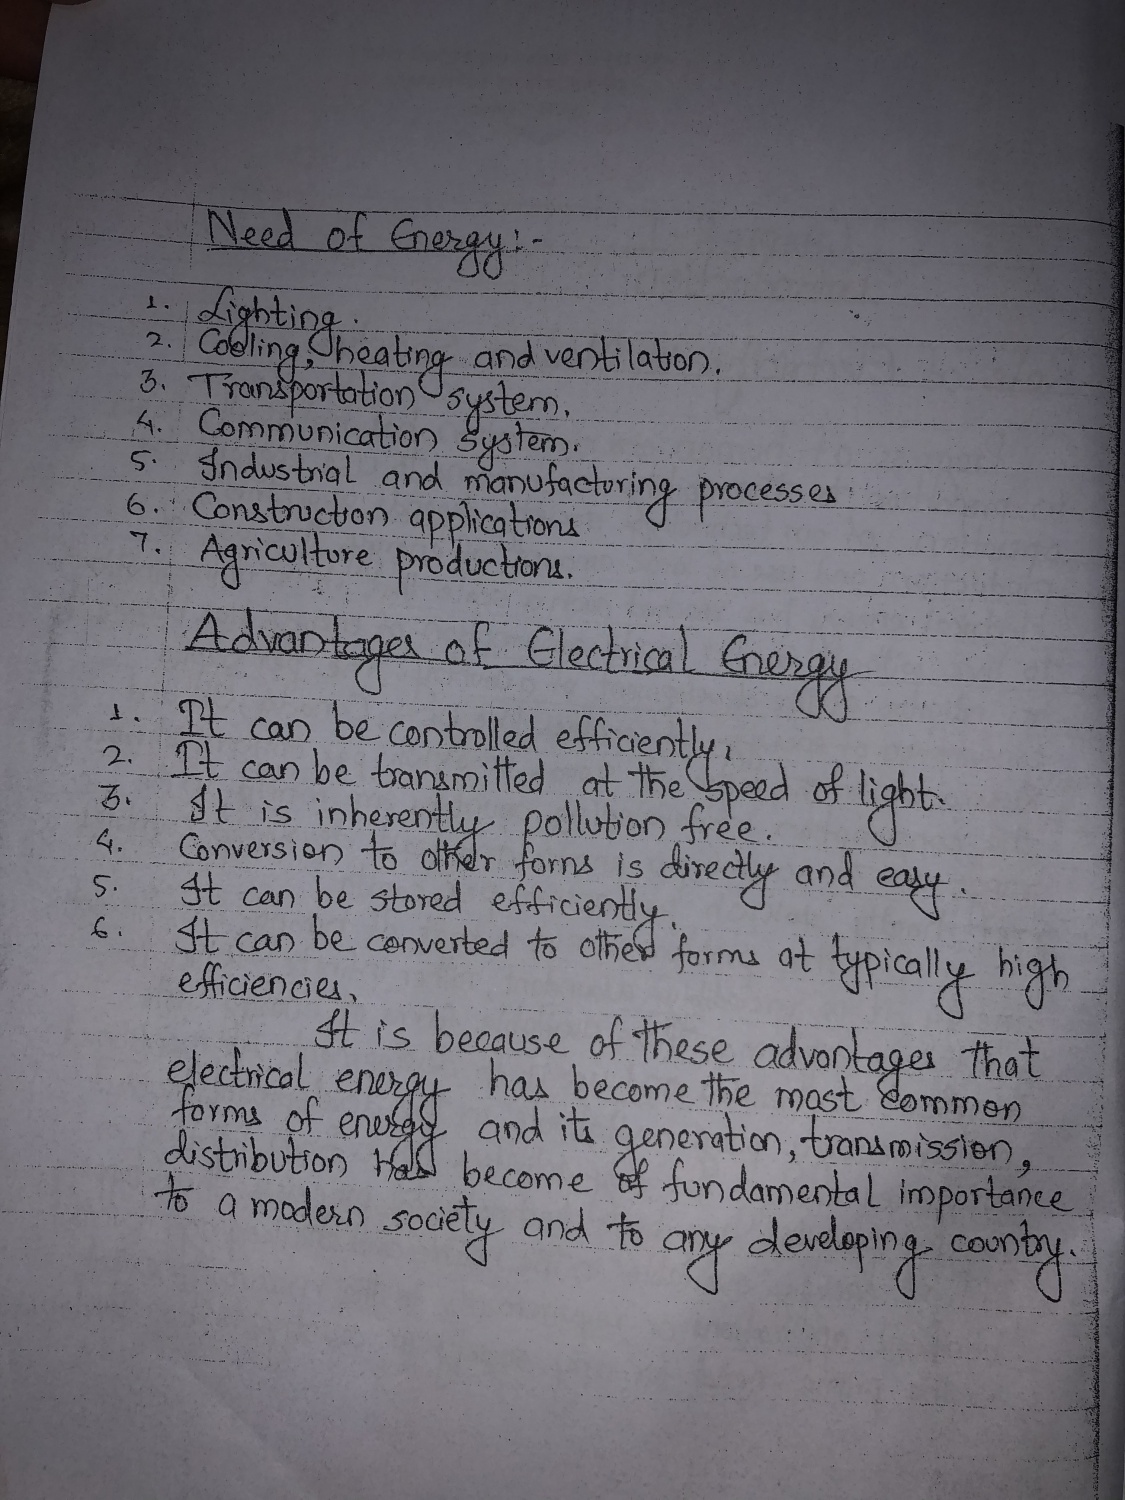 Need of Energy:-
1. Lighting.
2. Cooling, heating and ventilation.
3. Transportation system.
4. Communication system.
5. Industrial and manufacturing processes
6. Construction applications
7. Agriculture productions.
Advantages of Electrical Energy
1. It can be controlled efficiently.
2. It can be transmitted at the speed of light.
3. It is inherently pollution free.
4. Conversion to other forms is directly and easy.
5. It can be stored efficiently.
6. It can be converted to other forms at typically high
efficiencies.
It is because of these advantages that
electrical energy has become the most common
forms of energy and its generation, transmission,
distribution has become of fundamental importance
to a modern society and to any developing country.